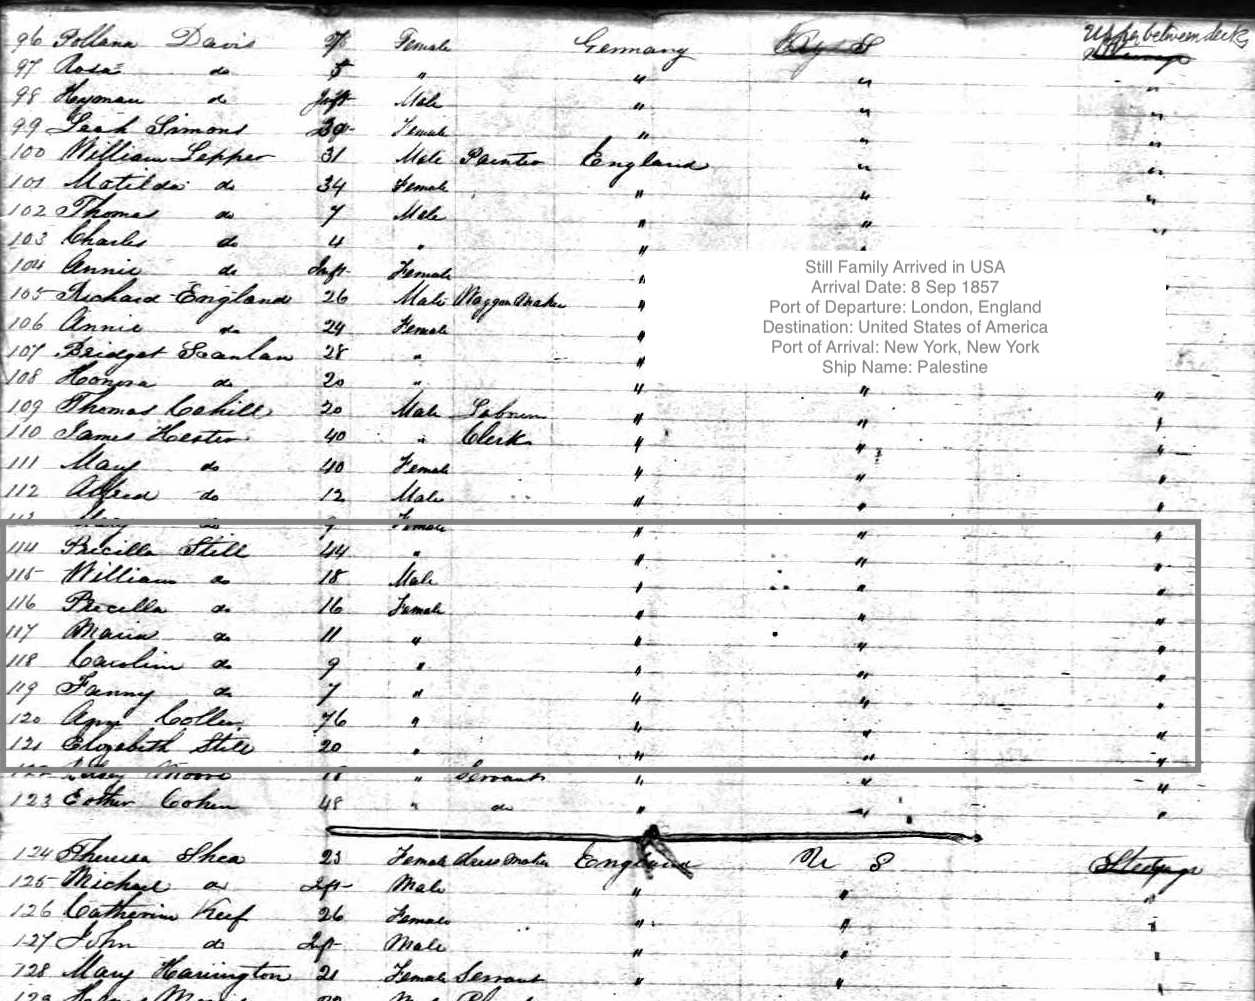 96 Pollana Davis 7 Female Germany U S Upper between decks
97 Rosa do 5 " " " "
98 Hyman do Inft Male " " "
99 Leah Simons 20 Female " " "
100 William Lepper 31 Male Painter England " "
101 Matilda do 34 Female " " "
102 Thomas do 7 Male " " "
103 Charles do 4 " " " "
104 Annie do Inft Female "
105 Richard England 26 Male Waggon Maker " "
106 Annie do 24 Female "
107 Bridget Scanlan 28 " "
108 Honora do 20 " " " "
109 Thomas Cahill 20 Male Labourer " " "
110 James Hester 40 " Clerk " " "
111 Mary do 40 Female " " "
112 Alfred do 12 Male " " "
113 Mary do 9 Female " " "
114 Pricilla Still 44 " " " "
115 William do 18 Male " " "
116 Precilla do 16 Female " " "
117 Maria do 11 " " " "
118 Carolin do 9 " " " "
119 Fanny do 7 " " " "
120 Ann 76 " " " "
121 Elizabeth Still 20 " " " "
122 Moore 18 " Servant " " "
123 Esther Cohen 48 " do " " "
124 Theresa Shea 23 Female dress maker England U S Steerage
125 Michael do Inft Male " " "
126 Catherin Keef 26 Female " " "
127 John do Inft Male " " "
128 Mary Harrington 21 Female Servant " " "
129
Still Family Arrived in USA
Arrival Date: 8 Sep 1857
Port of Departure: London, England
Destination: United States of America
Port of Arrival: New York, New York
Ship Name: Palestine